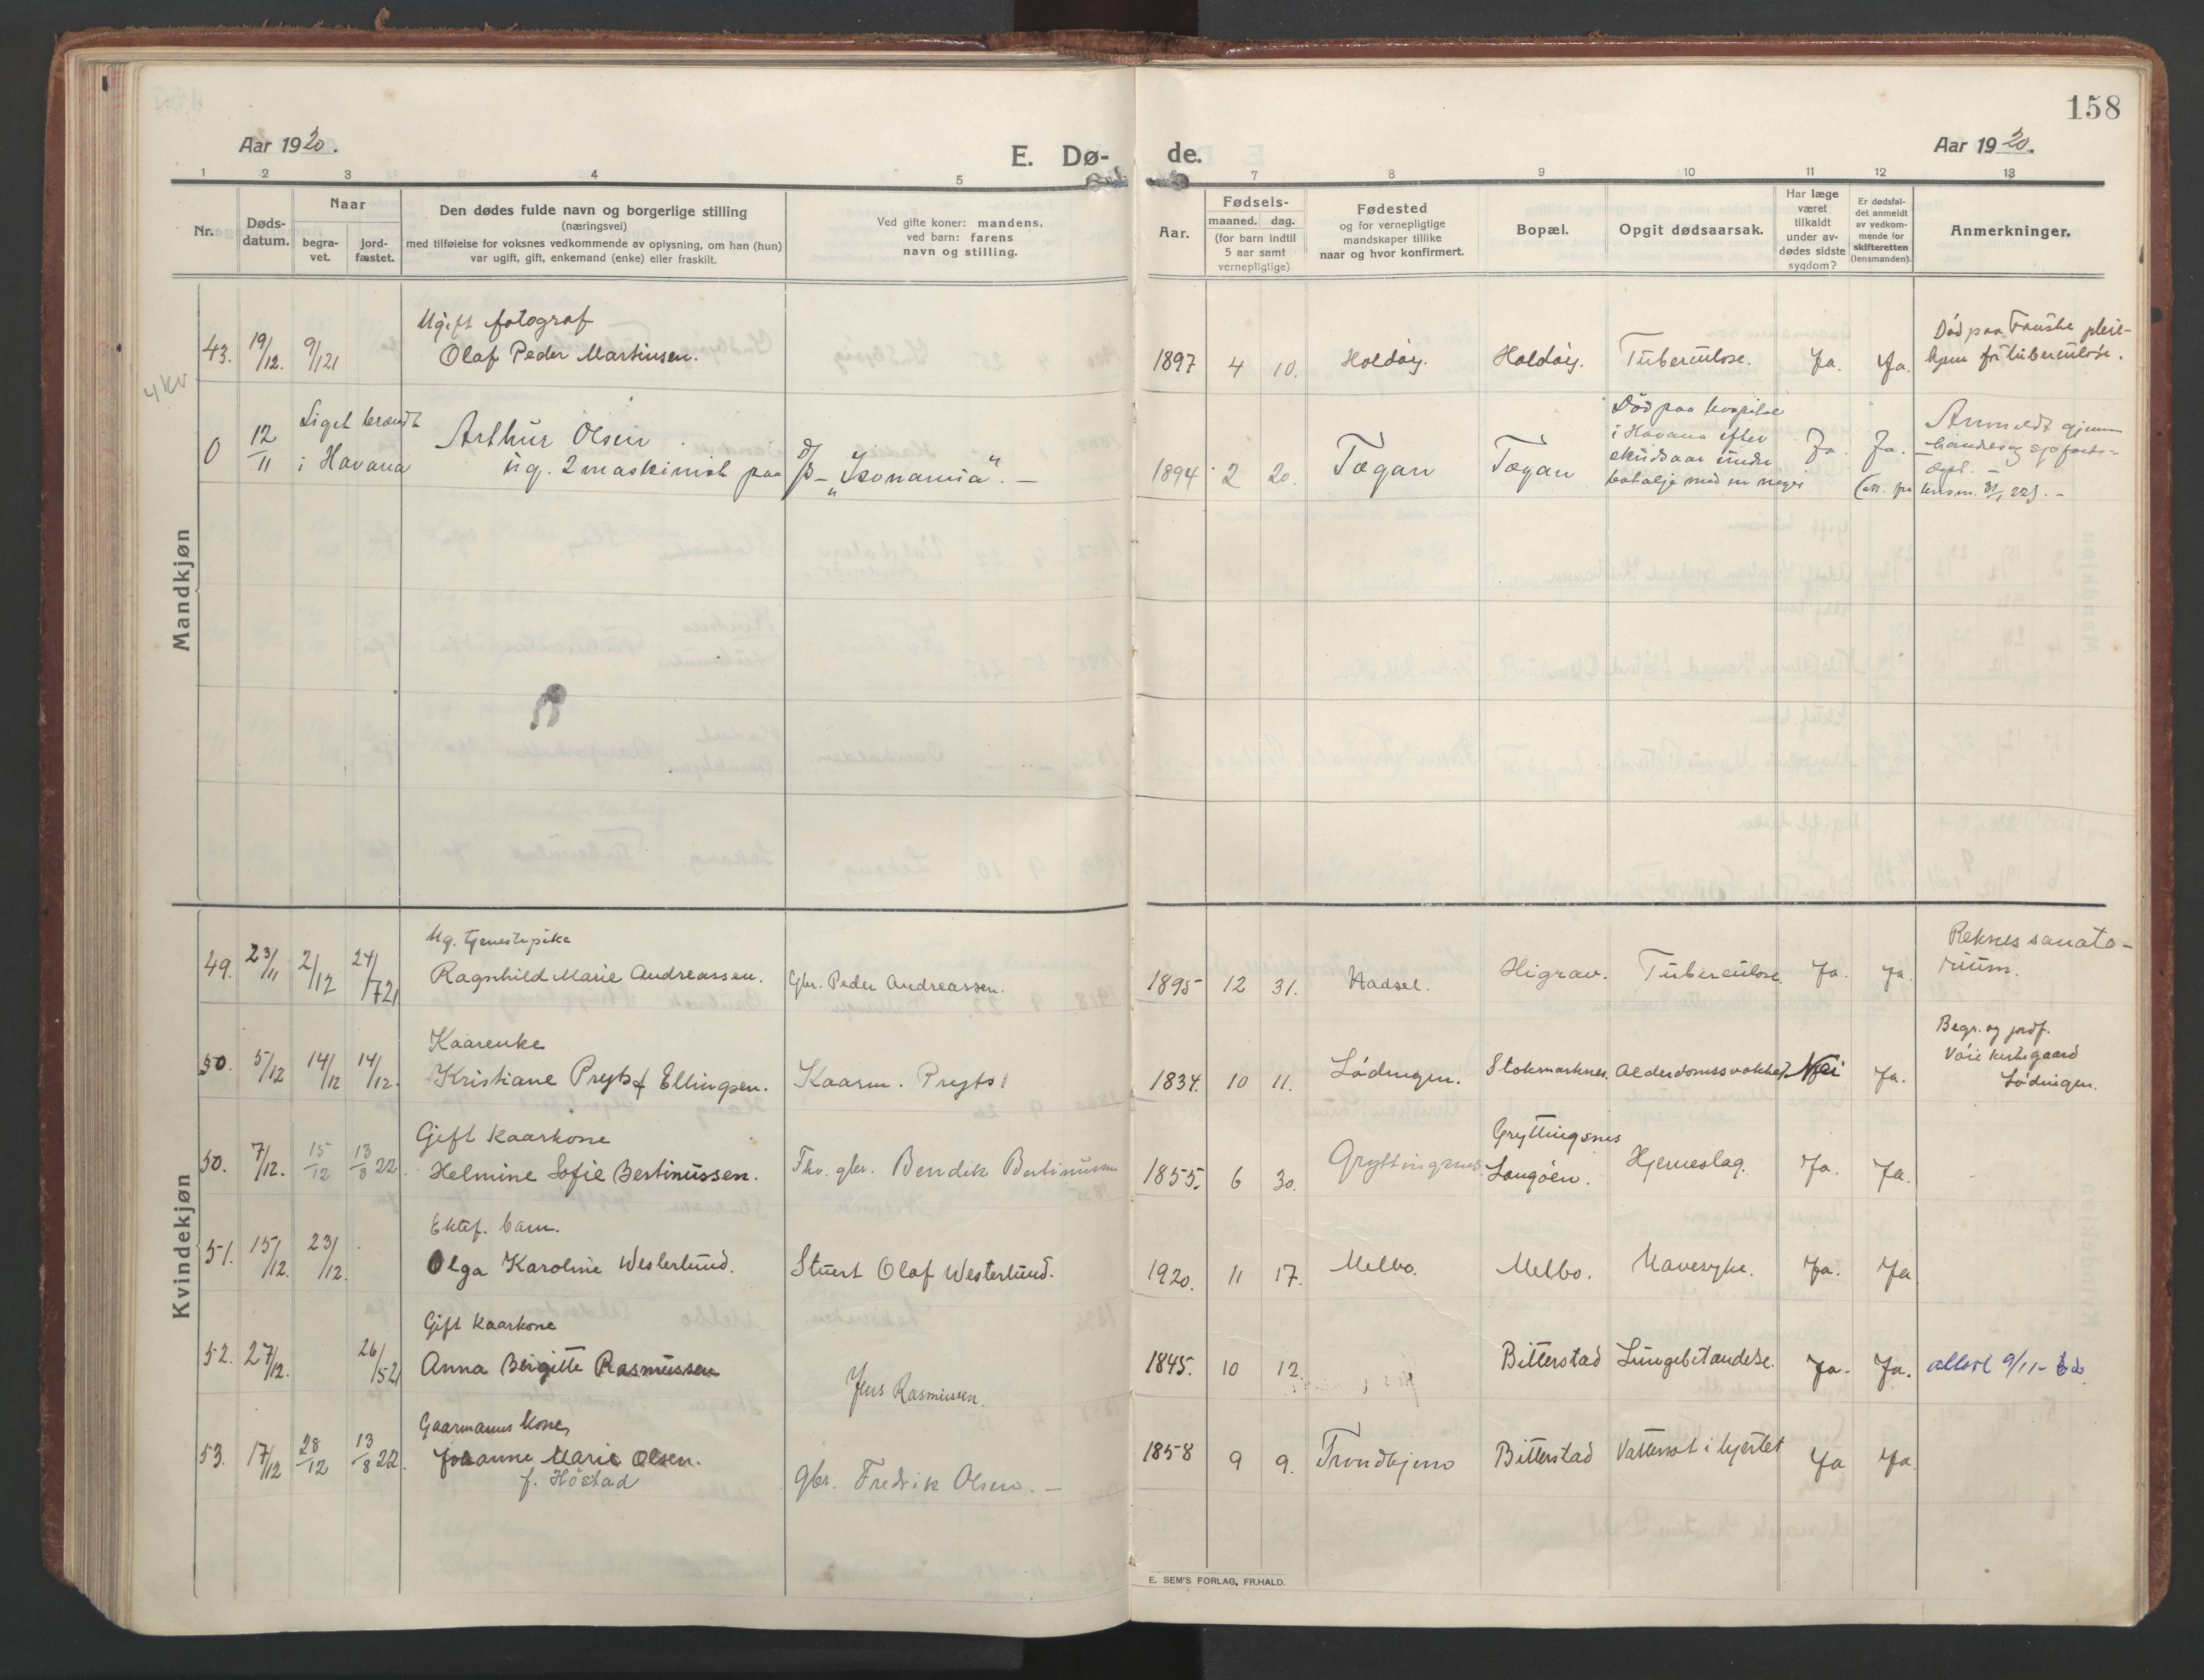 158
Aar 1920.
E. Dø-
de.
Aar 1920.
1 2 3 4 5
7 8 9 10 11 12 13
Nr.
Døds-
datum.
Naar
begra-
vet.
jord-
fæstet.
Den dødes fulde navn og borgerlige stilling
(næringsvei)
med tilføielse for voksnes vedkommende av oplysning, om han (hun)
var ugift, gift, enkemand (enke) eller fraskilt.
Ved gifte koner: mandens,
ved barn: farens
navn og stilling.
Aar.
Fødsels-
maaned. dag.
(for barn indtil
5 aar samt
vernepligtige)
Fødested
og for vernepligtige
mandskaper tillike
naar og hvor konfirmert.
Bopæl.
Opgit dødsaarsak.
Har læge
været
tilkaldt
under av-
dødes sidste
sygdom?
Er dødsfal-
det anmeldt
av vedkom-
mende for
skifteretten
(lensmanden).
Anmerkninger.
Mandkjøn
4 kv
Ugift fotograf
43. 19/12. 9/121 Olaf Peder Martinsen. 1897 4 10. Holdøy. Holdøy. Tuberculose. Ja. Ja.
Død paa Fauske pleie-
hjem for tuberculose.
0 12/11 Liget brændt
i Havana
Arthur Olsen
ug. 2 maskinist paa D/S - "Isonamia". -
1894 2 20. Tøgan Tøgan
Død paa hospital
i Havana efter
skudsaar under
batalje med en neger
Ja. Ja.
Anmeldt gjennem
handels og sjøfarts-
dept. -
(att. fra lensm. 31/1 22). -
Kvindekjøn
Ug. tjenestepike
49. 23/11 2/12 24/721 Ragnhild Marie Andreassen. Gbr. Peder Andreassen. 1895 12 31. Hadsel. Higrav. Tuberculose. Ja. Ja.
Reknes sanato-
rium.
Kaarenke
50. 5/12 14/12 14/12. Kristiane Preyts f Ellingsen. Kaarm. Preyts 1834. 10 11. Lødingen. Stokmarknes. Alderdomssvakhet. Nei Ja.
Begr. og jordf.
Vaie kirkegaard
Lødingen.
Gift kaarkone
50. 7/12. 15/12 13/8 22. Helmine Sofie Bertinussen. Fhv. gbr. Bendik Bertinussen 1855. 6 30. Gryttingsnes. Gryttingsnes
Langøen. Hjerneslag. Ja. Ja.
Ektef. barn.
51. 15/12. 23/12. Olga Karoline Westerlund. Stuert Olaf Westerlund. 1920. 11 17. Melbo. Melbo. Mavesyke. Ja. Ja
Gift kaarkone
52. 27/12. 26/521 Anna Bergitte Rasmussen Jens Rasmussen. 1845. 10 12. Bitterstad Lungebetændelse. Ja. Ja.
Gaarmanns kone
53. 17/12 28/12 13/8 22. Johanne Marie Olsen.
f. Høstad
gbr. Fredrik Olsen. - 1858 9 9. Trondhjem Bitterstad Vattersot i hjertet Ja Ja.
E. SEM'S FORLAG, FR.HALD.